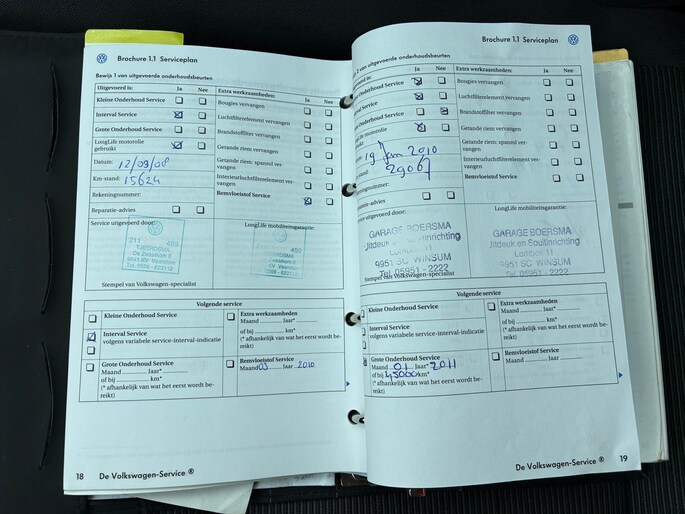 Brochure 1.1 Serviceplan
Bewijs 1 van uitgevoerde onderhoudsbeurten
Uitgevoerd is: Ja Nee Extra werkzaamheden: Ja Nee
Kleine Onderhoud Service Bougies vervangen
Interval Service Luchtfilterelement vervangen
Grote Onderhoud Service Brandstoffilter vervangen
LongLife motorolie gebruikt Getande riem vervangen
Datum: 12/03/08 Getande riem: spanrol vervangen
Km-stand: 15624 Interieurluchtfilterelement vervangen
Rekeningnummer: Remvloeistof Service
Reparatie-advies
Service uitgevoerd door: LongLife mobiliteitsgarantie:
211 459
TJEERDSMA
Stempel van Volkswagen-specialist
Volgende service
Kleine Onderhoud Service
Interval Service
volgens variabele service-interval-indicatie
Grote Onderhoud Service
Maand ........ Jaar*........
of bij ........ km*
(* afhankelijk van wat het eerst wordt bereikt)
Extra werkzaamheden
Maand ........ Jaar*........
of bij ........ km*
(* afhankelijk van wat het eerst wordt bereikt)
Remvloeistof Service
Maand 03 Jaar 2010
18 De Volkswagen-Service ®
Brochure 1.1 Serviceplan
van uitgevoerde onderhoudsbeurten
Ja Nee Extra werkzaamheden: Ja Nee
Service Bougies vervangen
Service Luchtfilterelement vervangen
Service Brandstoffilter vervangen
motorolie Getande riem vervangen
19 Jan 2010 Getande riem: spanrol vervangen
29067 Interieurluchtfilterelement vervangen
Remvloeistof Service
uitgevoerd door: LongLife mobiliteitsgarantie:
GARAGE BOERSMA
Jitdeuk en Spuitinrichting
9951 SC WINSUM
Tel. 05951 - 2222
GARAGE BOERSMA
Uitdeuk en Spuitinrichting
9951 SC WINSUM
Tel. 05951 - 2222
Stempel van Volkswagen-specialist
Volgende service
Kleine Onderhoud Service
Interval Service
volgens variabele service-interval-indicatie
Grote Onderhoud Service
Maand 01 Jaar* 2011
of bij 45000 km*
(* afhankelijk van wat het eerst wordt bereikt)
Extra werkzaamheden
Maand ........ Jaar*........
of bij ........ km*
(* afhankelijk van wat het eerst wordt bereikt)
Remvloeistof Service
Maand ........ Jaar ........
De Volkswagen-Service ® 19